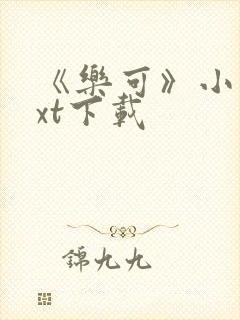 《樂可》小
xt下載
錦九九